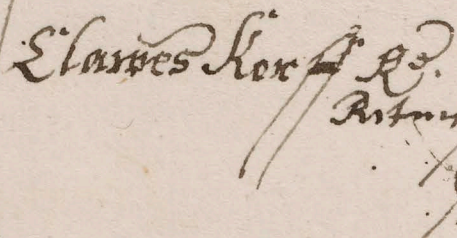 Clawes Korff Rẽ.
Ritm